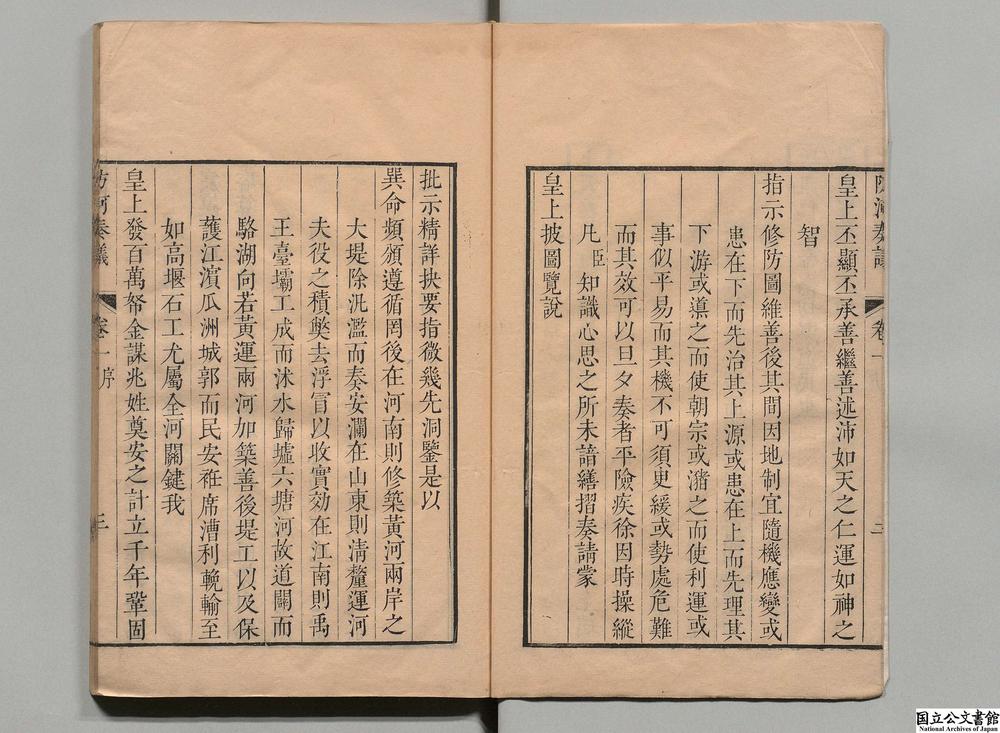 防河奏議 卷一 二
皇上丕顯丕承善繼善述沛如天之仁運如神之
智
指示修防圖維善後其間因地制宜隨機應變或
患在下而先治其上源或患在上而先理其
下游或導之而使朝宗或瀦之而使利運或
事似平易而其機不可須更緩或勢處危難
而其效可以旦夕奏者平險疾徐因時操縱
凡臣知識心思之所未諳繕摺奏請蒙
皇上披圖覽說
批示精詳抉要指微幾先洞鑒是以
巽命頻頒遵循罔後在河南則修築黃河兩岸之
大堤除汎濫而奏安瀾在山東則清釐運河
夫役之積獘去浮冒以收實効在江南則禹
王臺壩工成而沭水歸墟六塘河故道闢而
駱湖向若黃運兩河加築善後堤工以及保
護江濱瓜洲城郭而民安袵席漕利輓輸至
如高堰石工尤屬全河關鍵我
皇上發百萬帑金謀兆姓奠安之計立千年鞏固
防河奏議 卷一序 三
国立公文書館
National Archives of Japan